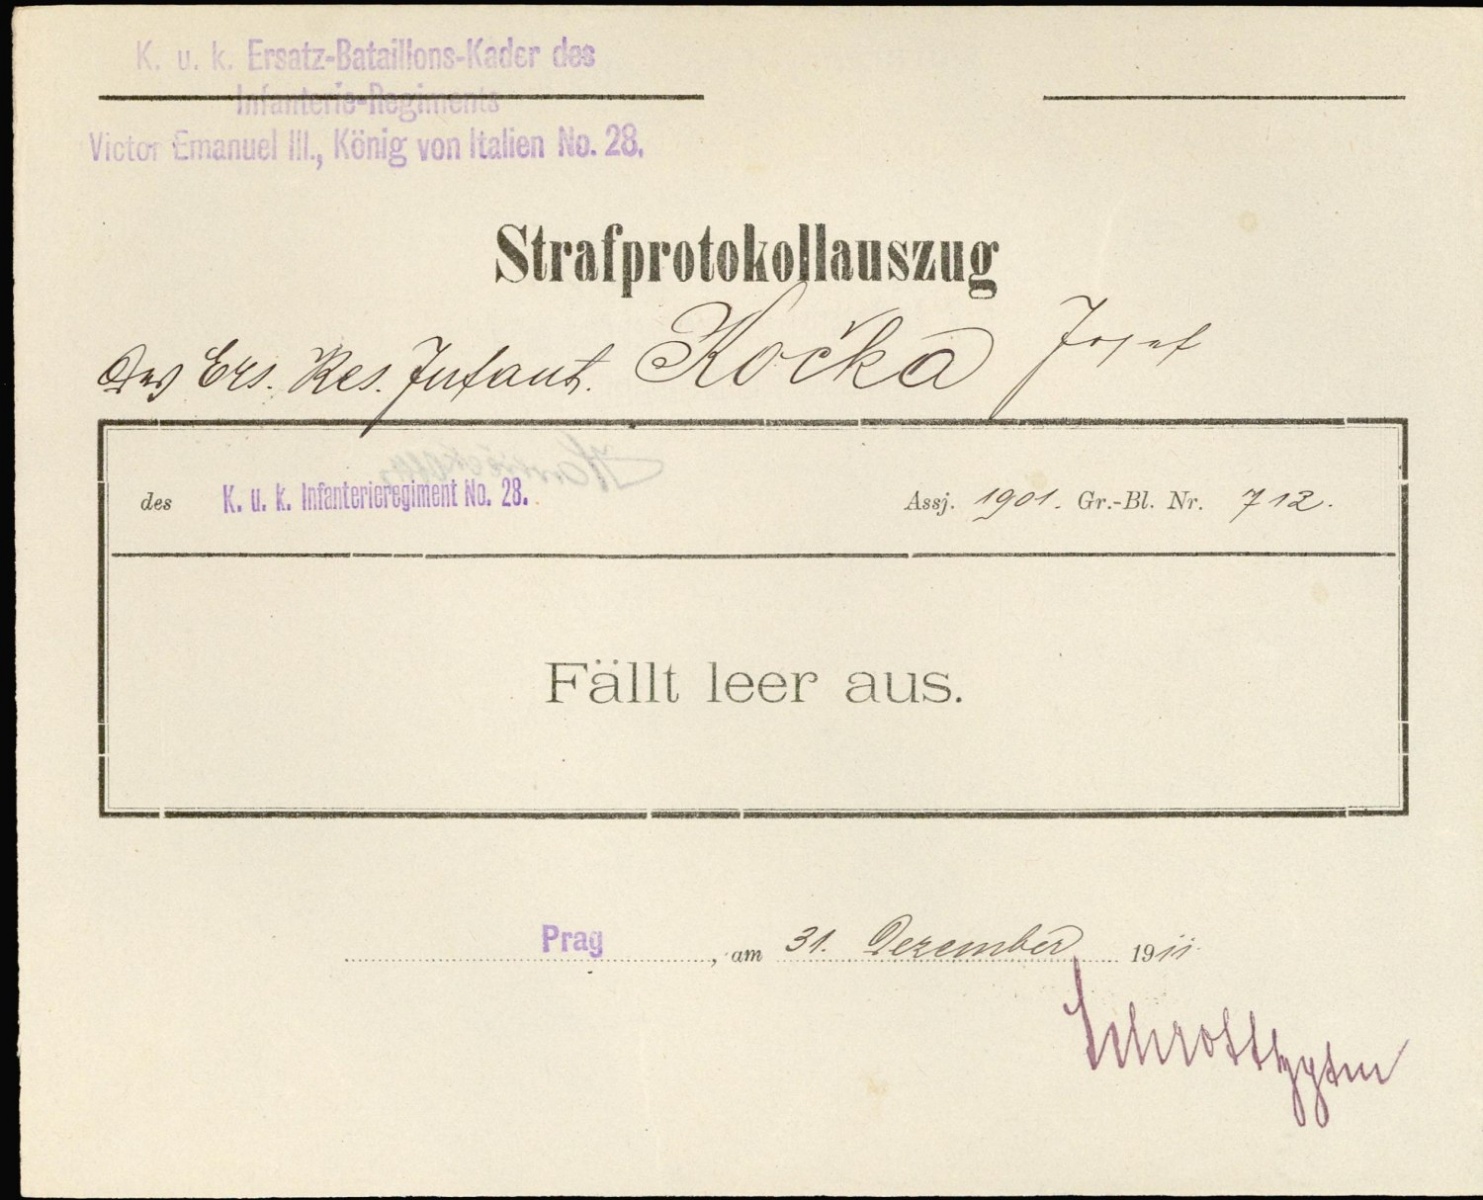 K. u. k. Ersatz-Bataillons-Kader des
Infanterie-Regiments
Victor Emanuel III., König von Italien No. 28.
Strafprotokollauszug
Des Ers. Res. Infant. Kočka Josef
des K. u. k. Infanterieregiment No. 28. Assj. 1901. Gr.-Bl. Nr. 712.
Fällt leer aus.
Prag, am 31. Dezember 1911